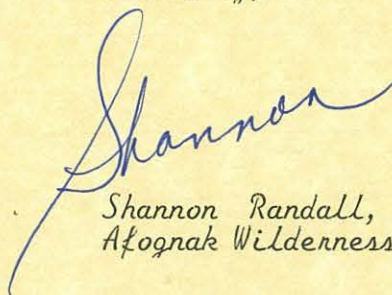 Shannon
Shannon Randall,
Afognak Wilderness